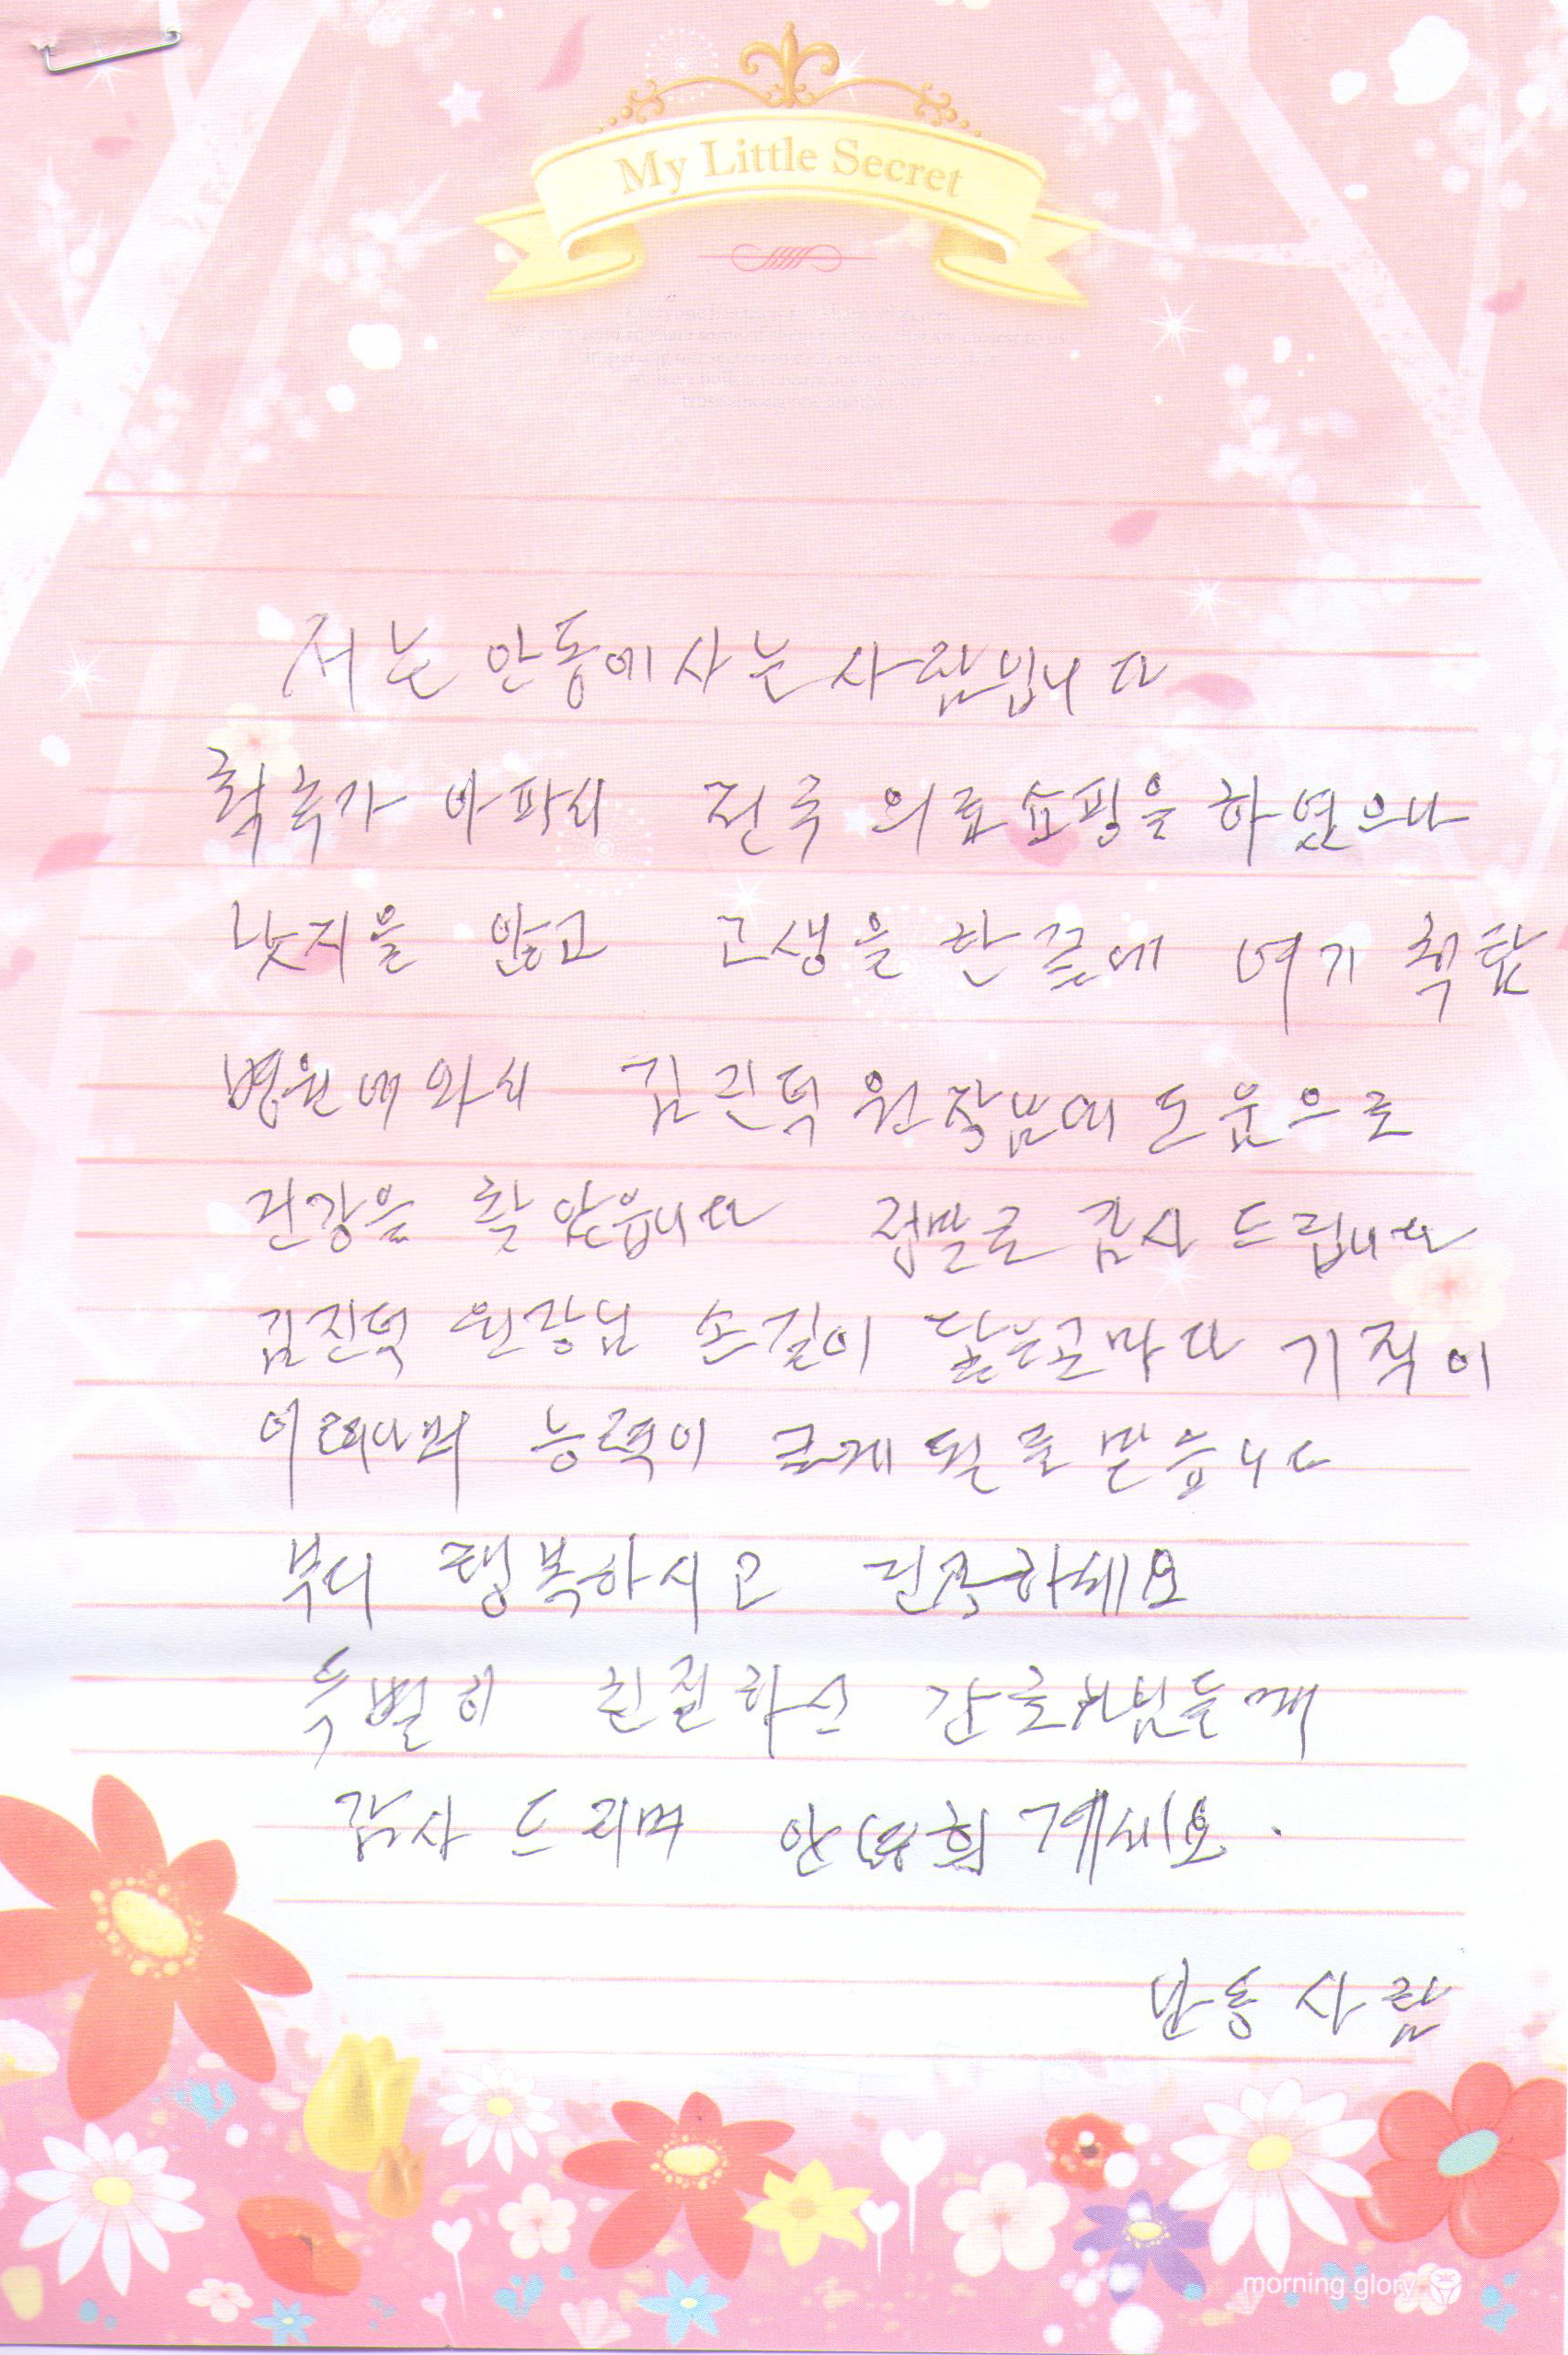 My Little Secret
저는 안동에 사는 사람입니다
척추가 아파서 전국 의료쇼핑을 하였으나
낫지를 않고 고생을 한 끝에 여기 척탑
병원에 와서 김진덕 원장님에 도움으로
건강을 찾았읍니다 정말로 감사드립니다
김진덕 원장님 손길이 닿는곧마다 기적이
이러나며 능력이 크게 될로 믿습니다
부디 행복하시고 건강하세요
특별히 친절하신 간호사님들께
감사드리며 안녕희 계세요.
안동사람
morning glory